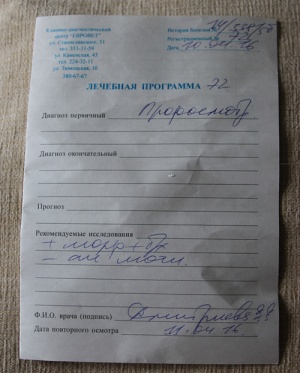 Клинико-диагностический
центр "ЕВРОВЕТ"
ул. Станиславского, 51
тел. 351-11-59
ул. Каменская, 43
тел. 224-32-11
ул.
380-67-67
История болезни №
Регистрационный №
Дата 10.04.16
ЛЕЧЕБНАЯ ПРОГРАММА
Диагноз первичный Профосмотр
Диагноз окончательный
Прогноз
Рекомендуемые исследования
+ морф + бх
- ан мочи.
Ф.И.О. врача (подпись) Дмитриева
Дата повторного осмотра 11.04.16